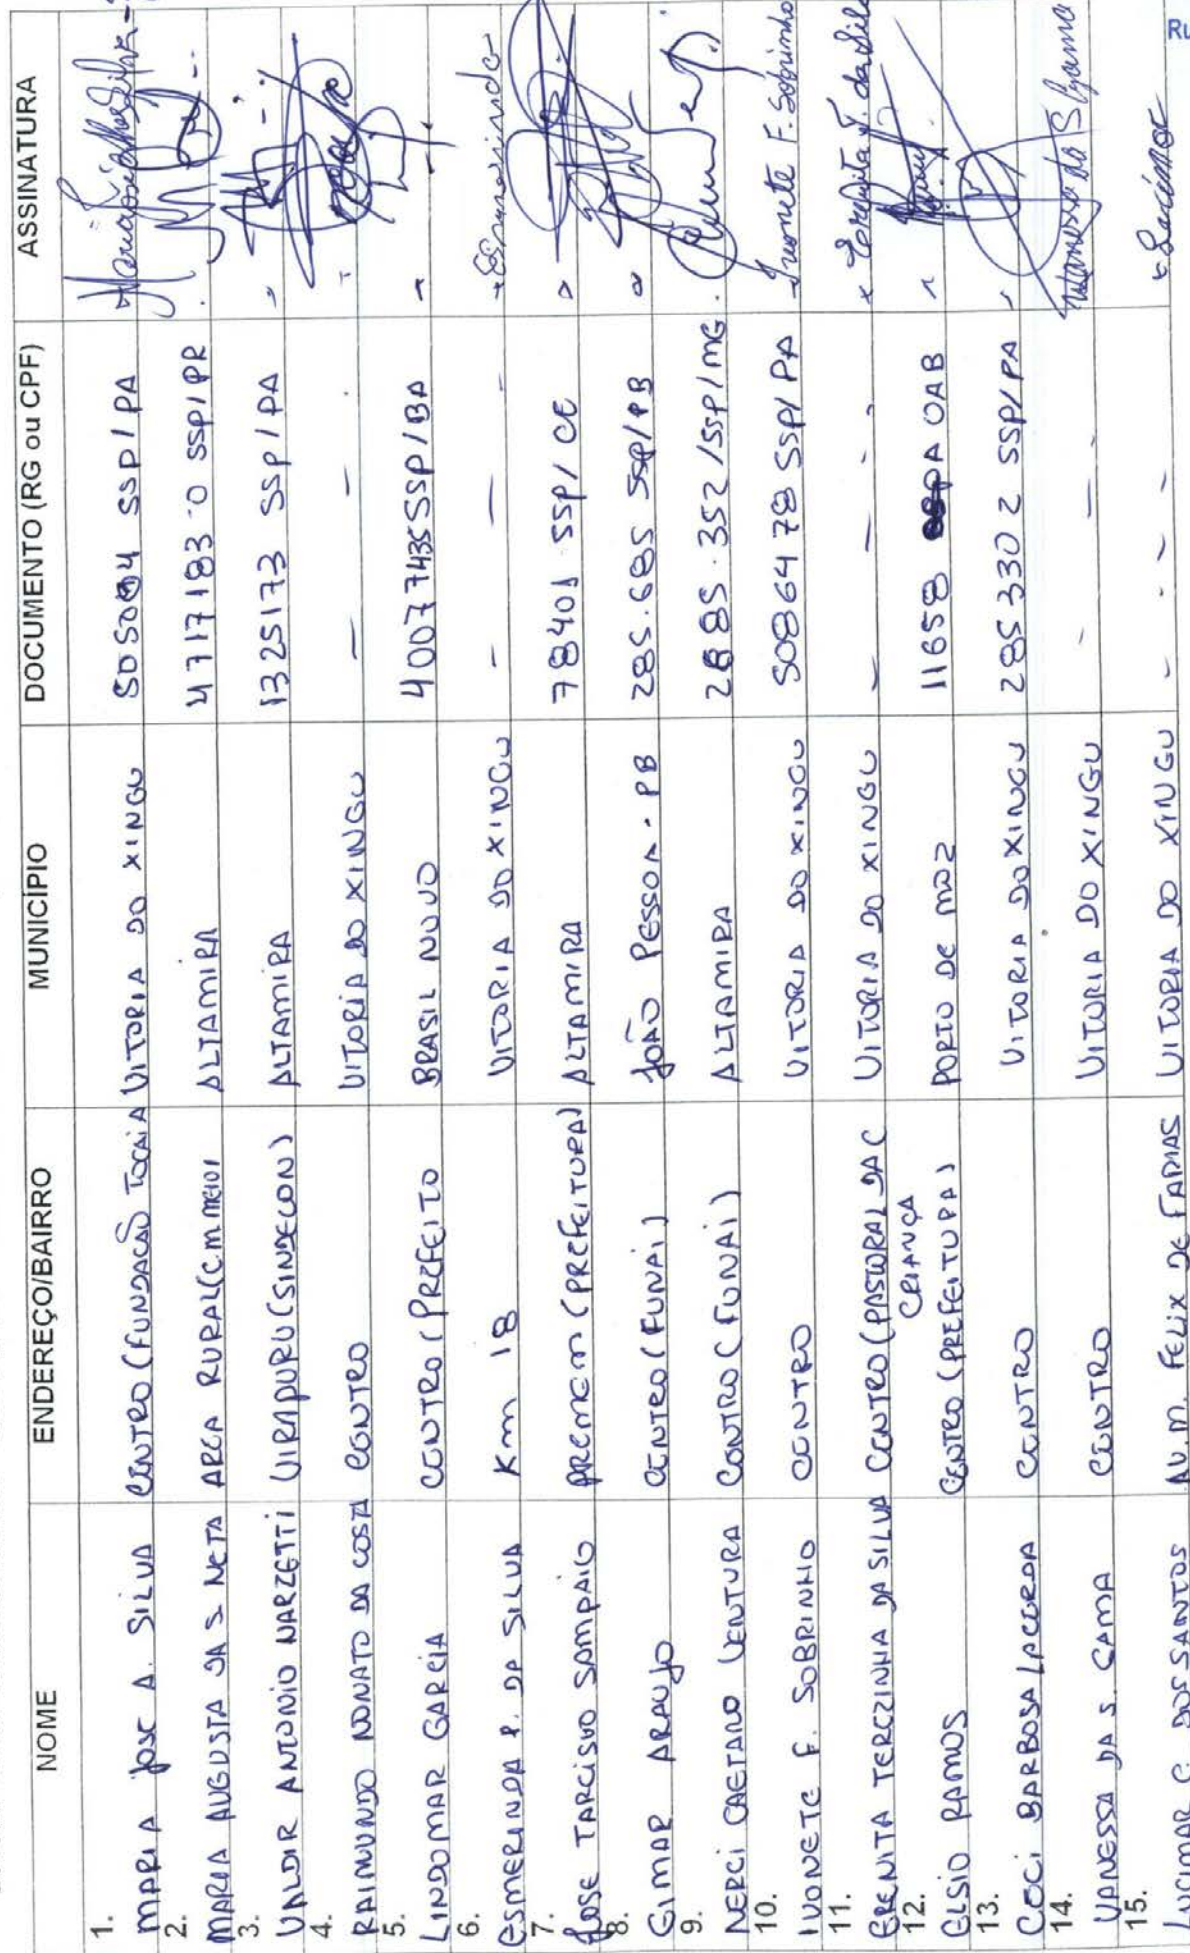 NOME ENDEREÇO/BAIRRO MUNICÍPIO DOCUMENTO (RG ou CPF) ASSINATURA
1. MARIA JOSE A. SILVA CENTRO (FUNDAÇÃO TOCAIA VITORIA DO XINGU SSP/PA
2. MARIA AUGUSTA DA S. NETA AREA RURAL ALTAMIRA 4717183-0 SSP/PR
3. VALDIR ANTONIO NARZETTI UIRAPURU (SINDECON) ALTAMIRA 1325173 SSP/PA
4. RAIMUNDO NONATO DA COSTA CENTRO VITORIA DO XINGU — —
5. LINDOMAR GARCIA CENTRO (PREFEITO BRASIL NOVO 40077435 SSP/BA
6. ESMERINDA P. DA SILVA Km 18 VITORIA DO XINGU - — - Esmerinda
7. JOSE TARCISIO SAMPAIO PREMEM (PREFEITURA) ALTAMIRA 78401 SSP/CE
8. GIMAR ARAUJO CENTRO (FUNAI) JOÃO PESSOA-PB 285.685 SSP/PB
9. NERCI CAETANO VENTURA CENTRO (FUNAI) ALTAMIRA 2885.352/SSP/MG
10. IVONETE F. SOBRINHO CENTRO VITORIA DO XINGU 5086478 SSP/PA Ivonete F. Sobrinho
11. ERENITA TEREZINHA DA SILVA CENTRO (PASTORAL DA C CRIANÇA VITORIA DO XINGU - — - - Erenita T. da Silva
12. ELSIO RAMOS CENTRO (PREFEITURA) PORTO DE MOZ 11658 OAB
13. CECI BARBOSA LACERDA CENTRO VITORIA DO XINGU 2853302 SSP/PA
14. VANESSA DA S. GAMA CENTRO VITORIA DO XINGU - — - Vanessa da S. Gama
15. LUCIMAR C. DOS SANTOS AV. M. FELIX DE FARIAS VITORIA DO XINGU - - - - Lucimar
Ru